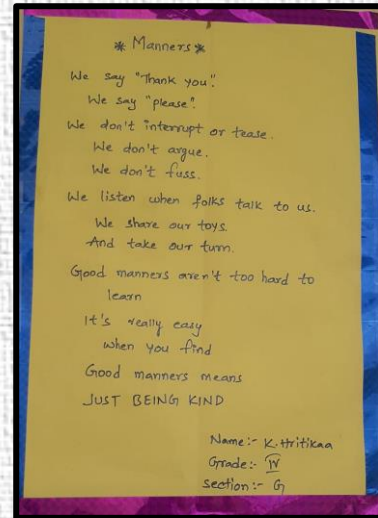 * Manners *
We say "Thank you".
We say "please".
We don't interrupt or tease.
We don't argue.
We don't fuss.
We listen when folks talk to us.
We share our toys.
And take our turn.
Good manners aren't too hard to
learn
It's really easy
when you find
Good manners means
JUST BEING KIND
Name:- K.Hritikaa
Grade:- IV
Section:- G